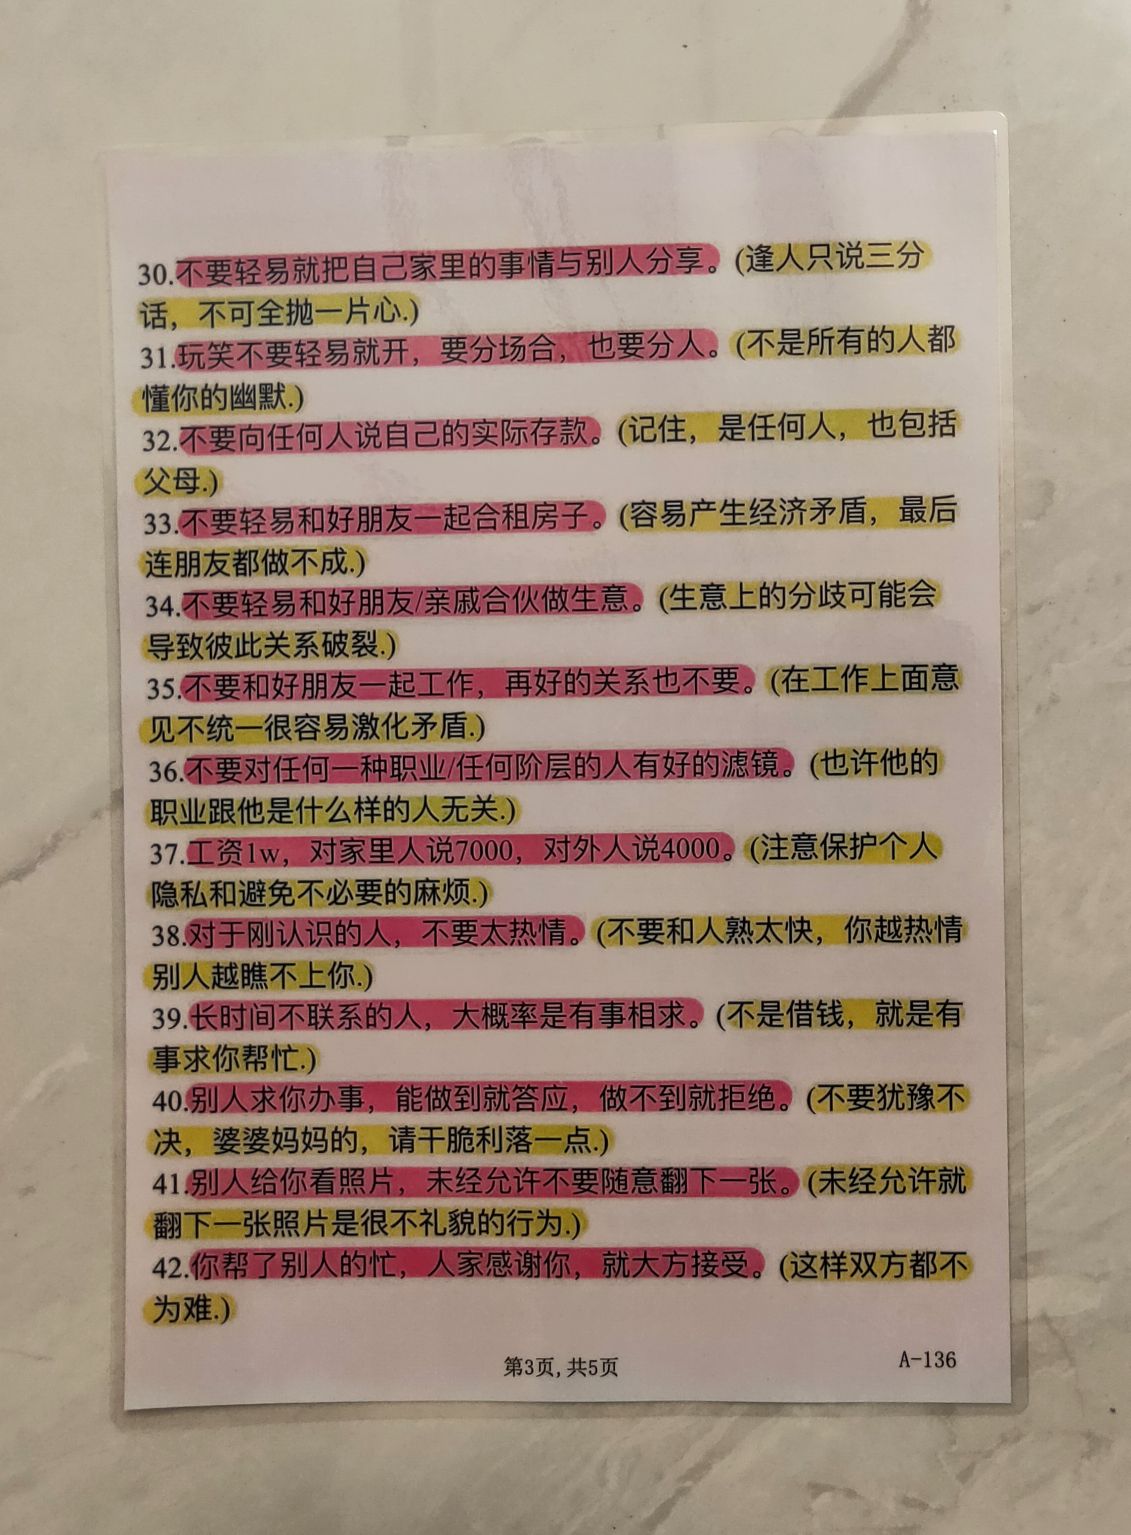 30.不要轻易就把自己家里的事情与别人分享。(逢人只说三分
话，不可全抛一片心.)
31.玩笑不要轻易就开，要分场合，也要分人。(不是所有的人都
懂你的幽默.)
32.不要向任何人说自己的实际存款。(记住，是任何人，也包括
父母.)
33.不要轻易和好朋友一起合租房子。(容易产生经济矛盾，最后
连朋友都做不成.)
34.不要轻易和好朋友/亲戚合伙做生意。(生意上的分歧可能会
导致彼此关系破裂.)
35.不要和好朋友一起工作，再好的关系也不要。(在工作上面意
见不统一很容易激化矛盾.)
36.不要对任何一种职业/任何阶层的人有好的滤镜。(也许他的
职业跟他是什么样的人无关.)
37.工资1w，对家里人说7000，对外人说4000。(注意保护个人
隐私和避免不必要的麻烦.)
38.对于刚认识的人，不要太热情。(不要和人熟太快，你越热情
别人越瞧不上你.)
39.长时间不联系的人，大概率是有事相求。(不是借钱，就是有
事求你帮忙.)
40.别人求你办事，能做到就答应，做不到就拒绝。(不要犹豫不
决，婆婆妈妈的，请干脆利落一点.)
41.别人给你看照片，未经允许不要随意翻下一张。(未经允许就
翻下一张照片是很不礼貌的行为.)
42.你帮了别人的忙，人家感谢你，就大方接受。(这样双方都不
为难.)
第3页,共5页
A-136